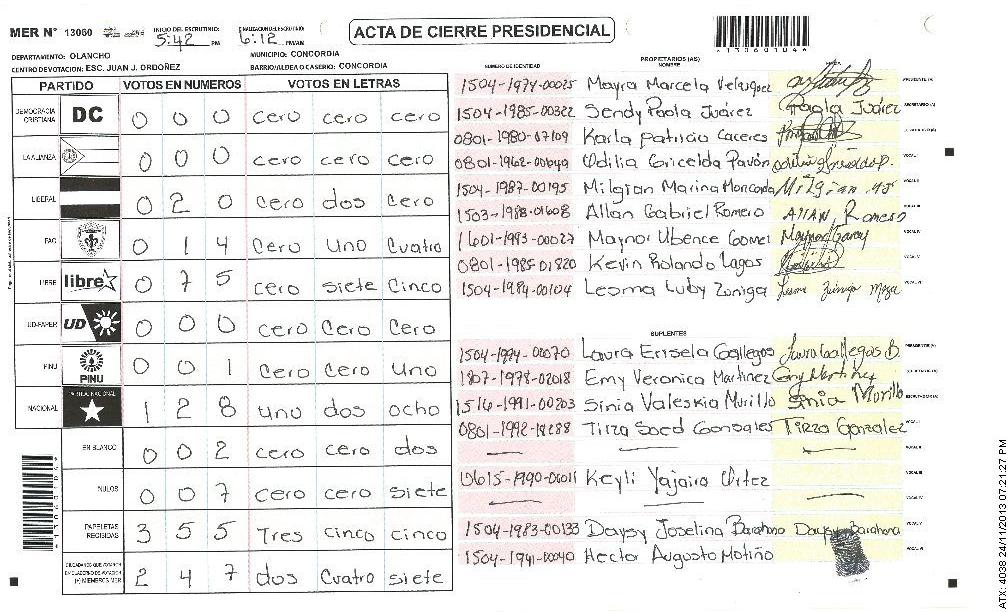 MER N° 13060
INICIO DEL ESCRUTINIO: 5:42 PM
FINALIZACION DEL ESCRUTINIO: 6:12 PM/AM
ACTA DE CIERRE PRESIDENCIAL
DEPARTAMENTO: OLANCHO
MUNICIPIO: CONCORDIA
CENTRO DE VOTACION: ESC. JUAN J. ORDOÑEZ
BARRIO/ALDEA O CASERIO: CONCORDIA
PARTIDO VOTOS EN NUMEROS VOTOS EN LETRAS
DEMOCRACIA CRISTIANA DC 0 0 0 cero cero cero
LA ALIANZA 0 0 0 cero cero cero
LIBERAL 0 2 0 cero dos cero
PAC 0 1 4 cero uno cuatro
LIBRE libre 0 7 5 cero siete cinco
UD-FAPER UD 0 0 0 cero cero cero
PINU PINU 0 0 1 cero cero uno
NACIONAL 1 2 8 uno dos ocho
EN BLANCO 0 0 2 cero cero dos
NULOS 0 0 7 cero cero siete
PAPELETAS RECIBIDAS 3 5 5 Tres cinco cinco
CIUDADANOS QUE VOTARON (+) MIEMBROS MER 2 4 7 dos cuatro siete
PROPIETARIOS (AS)
NUMERO DE IDENTIDAD NOMBRE
1504-1974-00025 Mayra Marcela Velasquez
1504-1985-00322 Sendy Paola Juárez Paola Juárez
0801-1980-07109 Karla Patricia Caceres
0801-1962-00649 Odilia Gricelda Pavón
1504-1987-00195 Milgian Marina Moncada Milgian
1503-1988-01608 Allan Gabriel Romero Allan Romero
1601-1993-00027 Maynor Ubence Gomez Maynor
0801-1985-01820 Kevin Rolando Lagos
1504-1984-00104 Lesma Luby Zuniga
SUPLENTES
1504-1994-00070 Laura Erisela Gallegos Laura Gallegos B.
1807-1978-02018 Emy Veronica Martinez Emy Martinez
1516-1991-00203 Sinia Valeskia Murillo Sinia Murillo
0801-1992-18288 Tirza Saed Gonsales Tirza Gonzalez
0615-1990-00011 Keyli Yajaira Ortez
1504-1983-00133 Daysy Joselina Barahona Daysy Barahona
1504-1941-00040 Hector Augusto Motiño
ATX: 4038 24/11/2013 07:21:27 PM